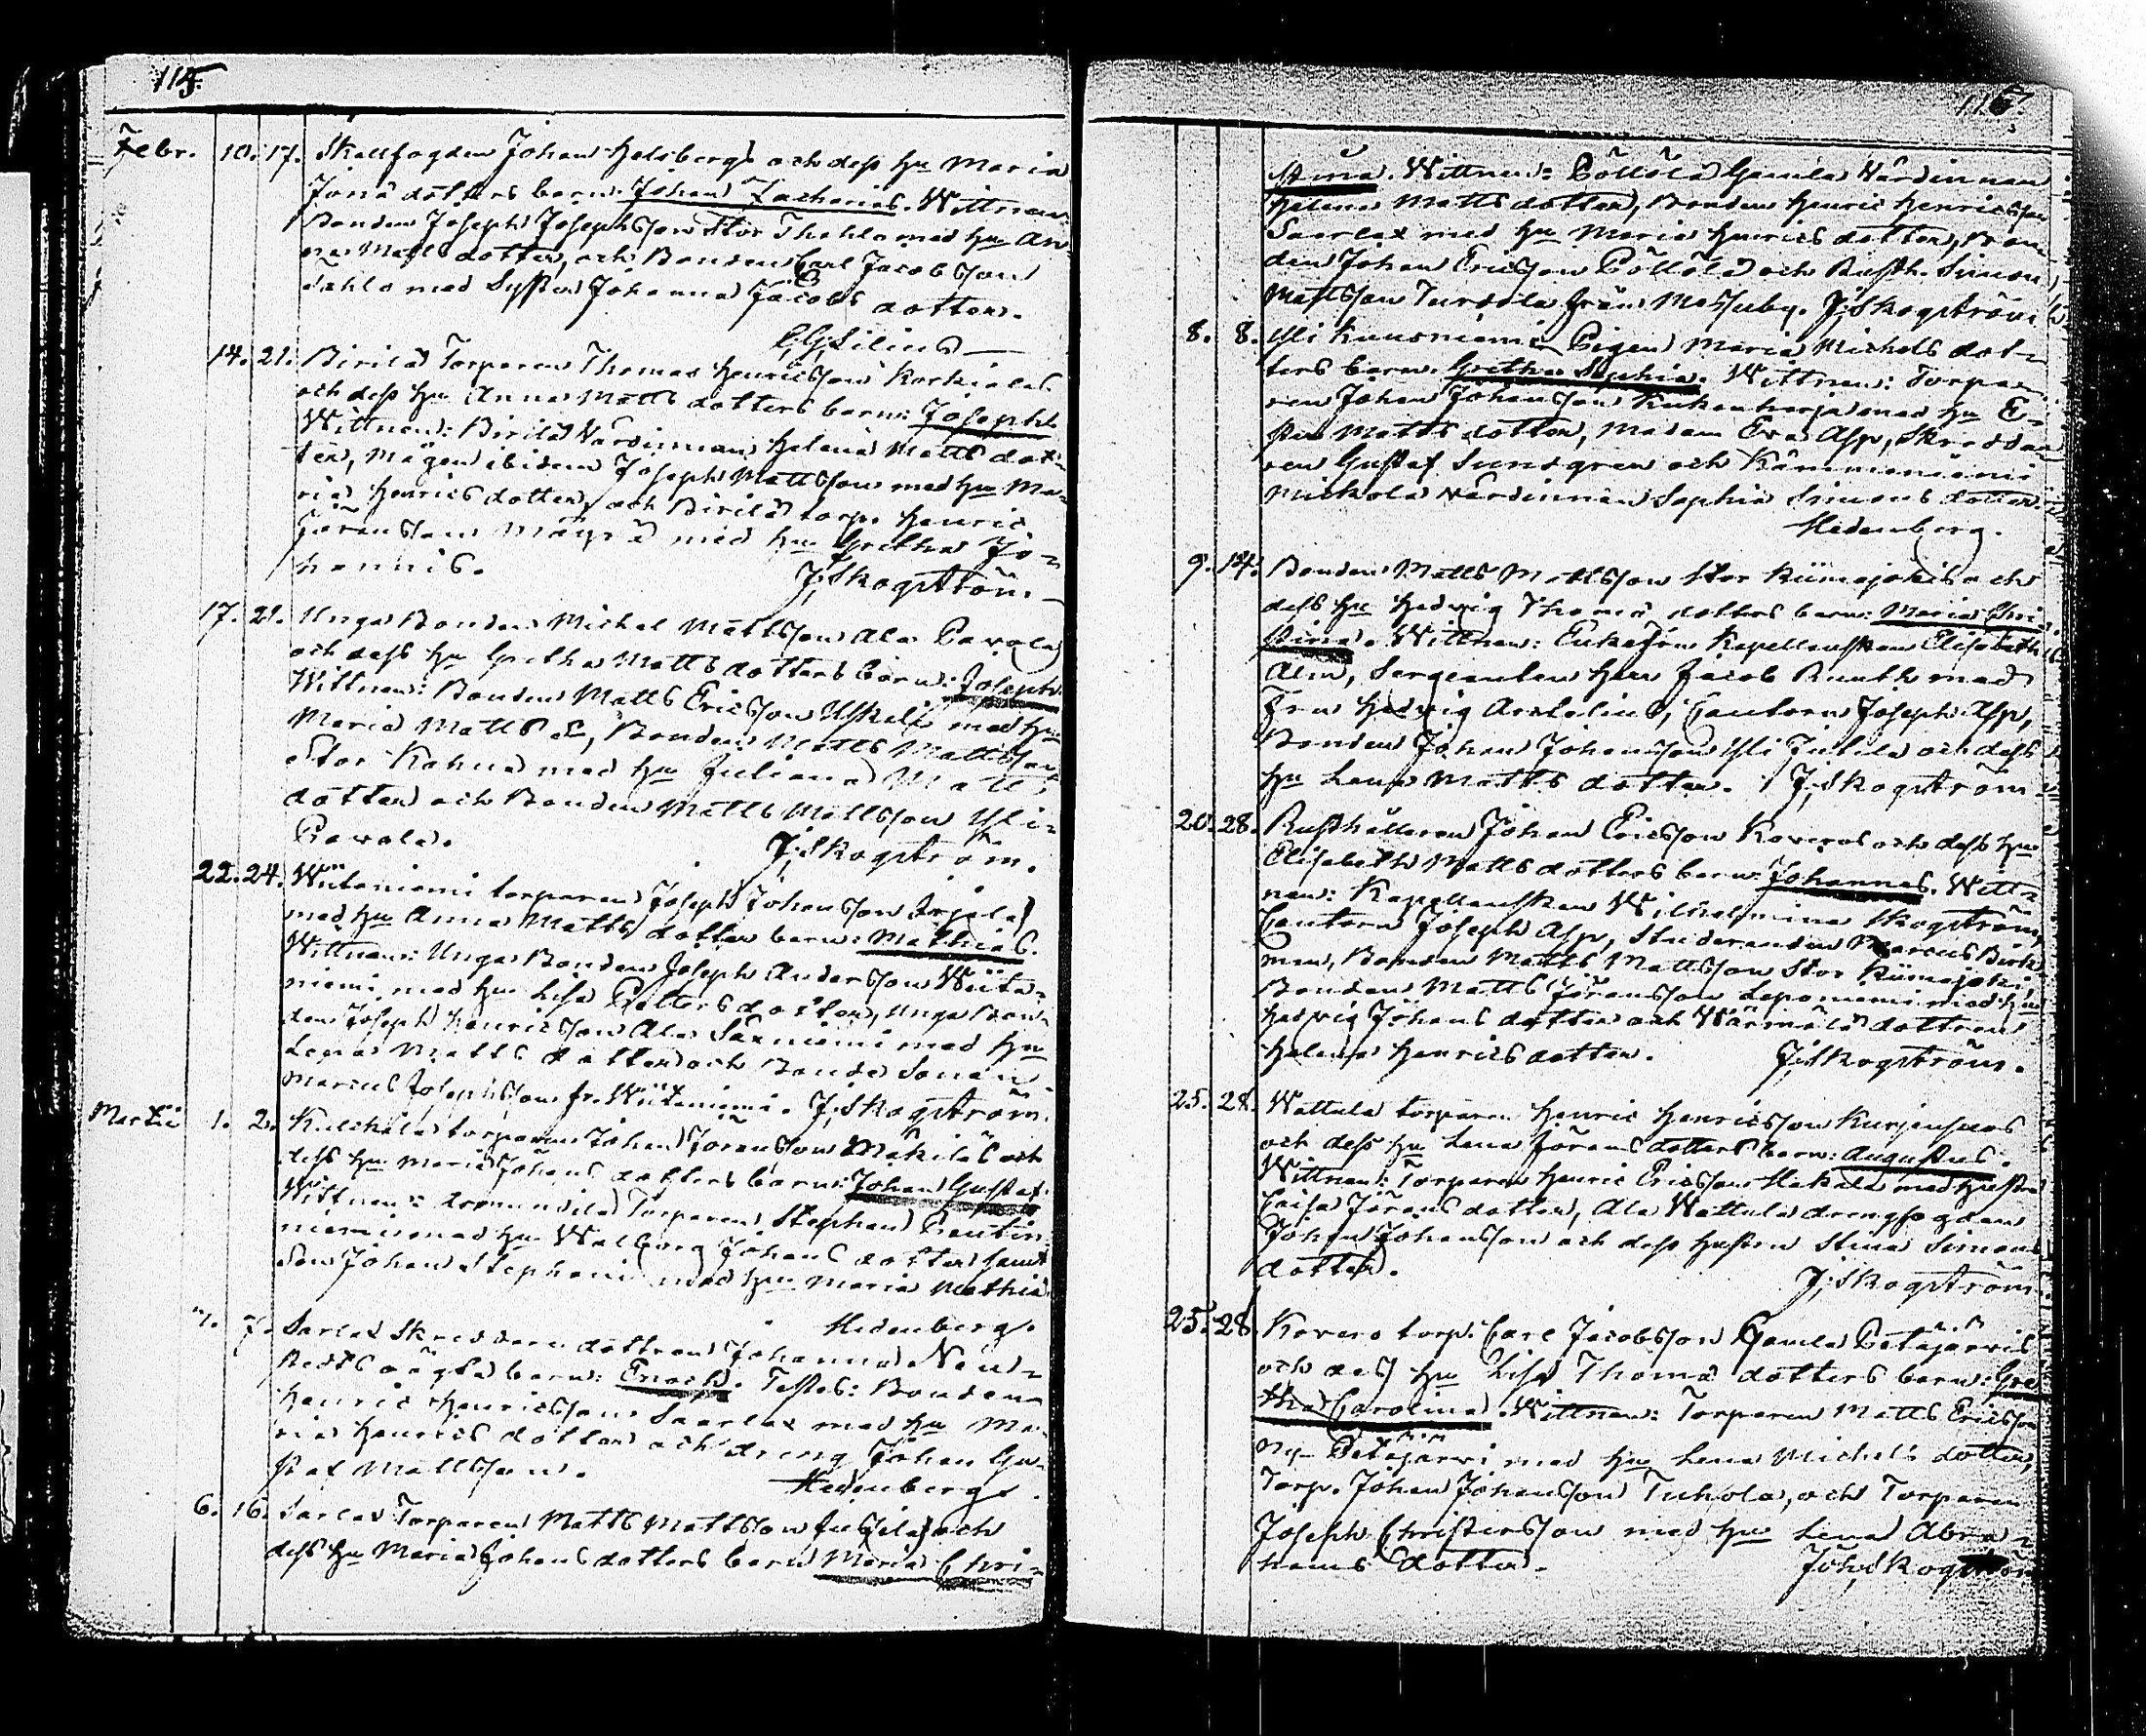 115.
Febr. 10. 17. Skallfogden Johan Helsberg och dess Hu Maria
Jonæ dotters barn: Johan Zacharias. Wittnen:
Bonden Joseph Josephsson Stor Thahlo med Hu An-
na Matts dotter, och Bonden Carl Jacobsson
Tahlo med Syster Johanna Jacobs dotter.
Lilius
14. 21. Birilä Torparen Thomas Henricsson Korkialas
och dess Hu Anna Matts dotters barn: Joseph
Wittnen: Birilä Värdinnan Helena Matts dot-
ter, Mågen ibidem Joseph Mattsson med Hu Ma-
ria Henrics dotter, och Birilä torp. Henric
Göransson Mäyrä med Hu Gretha Jo-
hannis.
J. Skogström
17. 21. Unga Bonden Michel Mattsson Ala Pavola
och dess Hu Gretha Matts dotters barn: Joseph
Wittnen: Bonden Matts Ericsson Uskeli med Hu
Maria Matts d., Bonden Matts Mattsson
Stor Kahua med Hu Juliana Matts
dotter och Bonden Matts Mattsson Yli-
Pavola.
J. Skogström.
22. 24. Wiitaniemi torparen Joseph Johansson Irjala
med Hu Anna Matts dotter barn: Mathias.
Wittnen: Unga Bonden Joseph Andersson Wiita-
niemi med Hu Lisa Petters dotter, Unga Bon-
den Joseph Henricsson Ala Saxniemi med Hu
Lena Matts dotter och Bonde Sonen
Marcus Josephsson fr. Wiitaniemi. J. Skogström
Martii 1. 2. torparen Johan Göransson Mäkiläs och
dess Hu Maria Johans dotters barn: Johan Gustaf.
Wittnen: Torparen Stephan Pentin-
niemi med Hu Walborg Johans dotter samt
Son Johan Stephani med Hu Maria Mathiæ
Hedenberg.
7. Sarlax Skreddare dottren Johanna
oägta barn: Enoch. Testes: Bonden
Henric Henricsson Saarlax med Hu Ma-
ria Henrics dotter och dreng Johan Gu-
staf Mattsson.
Hedenberg.
6. 16. Sarlax Torparen Matts Mattsson och
dess Hu Maria Johans dotters barn Maria Chri-
116.
stina. Wittnen: Pöllölä Gamla Värdinnan
Helena Matts dotter, Bonden Henric Henricsson
Saarlax med Hu Maria Henrics dotter, Bon-
den Johan Ericsson Pöllölä och Rusth. Simon
Mattsson Turvola från Massuby. J. Skogström
8. 8. Yli Kuusniemi Pigan Maria Michels dot-
ters barn: Gretha Sophia. Wittnen: Torpa-
ren Johan Johansson Kukonharja med Hu E-
ster Matts dotter, Madam Eva Asp, Skredda-
ren Gustaf Sundgren och Kämmeniemi
Mickola värdinnan Sophia Simons dotter.
Hedenberg.
9. 14. Bonden Matts Mattsson Stor Kiimajokis och
dess Hu Hedvig Thomæ dotters barn: Maria Chri-
stina. Wittnen: Enkefru Kapellanskan Elisabeth
Alm, Sergeanten Herr Jacob Ruuth med
Fru Hedvig Artelius, Cantorn Joseph Asp,
Bonden Johan Johansson Yli Jutila och dess
Hu Lena Matts dotter. J. Skogström
20. 28. Rusthållaren Johan Ericsson Koveros och dess Hu
Elisabeth Matts dotters barn: Johannes. Witt-
nen: Kapellanskan Wilhelmina Skogström,
Cantorn Joseph Asp, Studeranden Marcus Björk-
man, Bonden Matts Mattsson Stor Kiimajoki,
Bonden Matts Göransson Leponiemi med Hu
Hedvig Johans dotter och Wärmälä dottren
Helena Henrics dotter. J. Skogström.
25. 28. Wattula torparen Henric Henricsson Kurjensuos
och dess Hu Lena Görans dotters barn: Augustus.
Wittnen: Torparen Henric Ericsson Hakala med Hustru
Caisa Görans dotter, Ala Wattula drengfogden
Johan Johansson och dess Hustru Stina Simons
dotter.
J. Skogström
25. 28. Kovero torp. Carl Jacobsson Gamla Petäjärvis
och dess Hu Lisa Thomæ dotters barn: Gre-
tha Carolina. Wittnen: Torparen Matts Ericsson
Ny-Petäjärvi med Hu Lena Michels dotter,
Torp. Johan Johansson Tuhola, och Torparen
Joseph Christersson med Hu Lena Abra-
hams dotter. Joh. Skogström